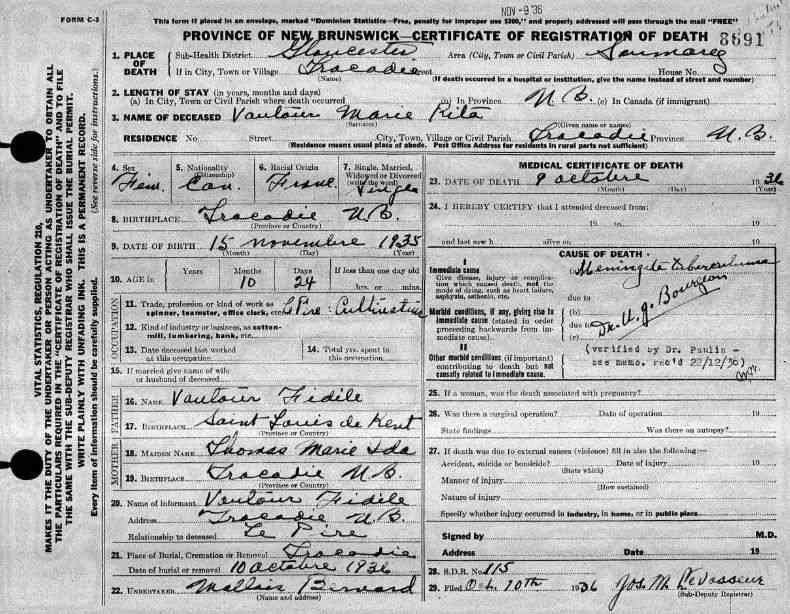 NOV -9 '36
FORM C-3
This form if placed in an envelope, marked "Dominion Statistics—Free, penalty for improper use $300," and properly addressed will pass through the mail "FREE"
PROVINCE OF NEW BRUNSWICK—CERTIFICATE OF REGISTRATION OF DEATH
8691
1. PLACE OF DEATH
Sub-Health District Gloucester Area (City, Town or Civil Parish) Saumarez
If in City, Town or Village Tracadie Street House No.
(Name) (If death occurred in a hospital or institution, give the name instead of street and number)
2. LENGTH OF STAY (in years, months and days)
(a) In City, Town or Civil Parish where death occurred (b) In Province N.B. (c) In Canada (if immigrant)
3. NAME OF DECEASED Vautour Marie Rita
(Surname) (Given name or names)
RESIDENCE No. Street City, Town or Village or Civil Parish Tracadie Province N.B.
(Residence means usual place of abode. Post Office Address for residents in rural parts not sufficient)
4. Sex Fem.
5. Nationality (Citizenship) Can.
6. Racial Origin Franc
7. Single, Married, Widowed or Divorced (write the word)
8. BIRTHPLACE Tracadie N.B.
(Province or Country)
9. DATE OF BIRTH 15 novembre 1935
(Month) (Day) (Year)
10. AGE is Years Months Days If less than one day old
10 24 hrs. or mins.
OCCUPATION
11. Trade, profession or kind of work as spinner, teamster, office clerk, etc. Le Pire: Cultivateur
12. Kind of industry or business, as cotton-mill, lumbering, bank, etc.
13. Date deceased last worked at this occupation
14. Total yrs. spent in this occupation
15. If married give name of wife or husband of deceased
FATHER
16. NAME Vautour Fidile
17. BIRTHPLACE Saint Louis de Kent
(Province or Country)
MOTHER
18. MAIDEN NAME Thomas Marie Ida
19. BIRTHPLACE Tracadie N.B.
(Province or Country)
20. Name of Informant Vautour Fidile
Address Tracadie N.B.
Relationship to deceased Le Pire
21. Place of Burial, Cremation or Removal Tracadie
Date of burial or removal 10 octobre 1936
22. UNDERTAKER Bernard
(Name and address)
MEDICAL CERTIFICATE OF DEATH
23. DATE OF DEATH 9 octobre 1936
(Month) (Day) (Year)
24. I HEREBY CERTIFY that I attended deceased from:
19 to 19
and last saw h alive on 19
CAUSE OF DEATH
I
Immediate cause
Give disease, injury or complication which caused death, not the mode of dying, such as heart failure, asphyxia, asthenia, etc.
(a) Meningite tuberculeuse
due to
Morbid conditions, if any, giving rise to immediate cause (stated in order proceeding backwards from immediate cause).
(b)
due to
(c)
Dr. A. J. Bourgeois
II
Other morbid conditions (if important) contributing to death but not causally related to immediate cause.
(verified by Dr. Paulin -
see memo. rec'd 22/12/36)
25. If a woman, was the death associated with pregnancy?
26. Was there a surgical operation? Date of operation 19
State findings Was there an autopsy?
27. If death was due to external causes (violence) fill in also the following:—
Accident, suicide or homicide? Date of injury 19
(State which)
Manner of injury
(How sustained)
Nature of injury
Specify whether injury occurred in industry, in home, or in public place
Signed by M.D.
Address Date 19
28. S.D.R. No. 115
29. Filed Oct. 10th 1936 Jos. M. LeVasseur
(Sub-Deputy Registrar)
VITAL STATISTICS, REGULATION 210,
MAKES IT THE DUTY OF THE UNDERTAKER OR PERSON ACTING AS UNDERTAKER TO OBTAIN ALL
THE PARTICULARS REQUIRED IN THE "CERTIFICATE OF REGISTRATION OF DEATH" AND TO FILE
THE SAME WITH THE SUB-DEPUTY REGISTRAR WHO SHALL ISSUE THE BURIAL PERMIT.
WRITE PLAINLY WITH UNFADING INK. THIS IS A PERMANENT RECORD.
Every item of information should be carefully supplied. (See reverse side for instructions.)